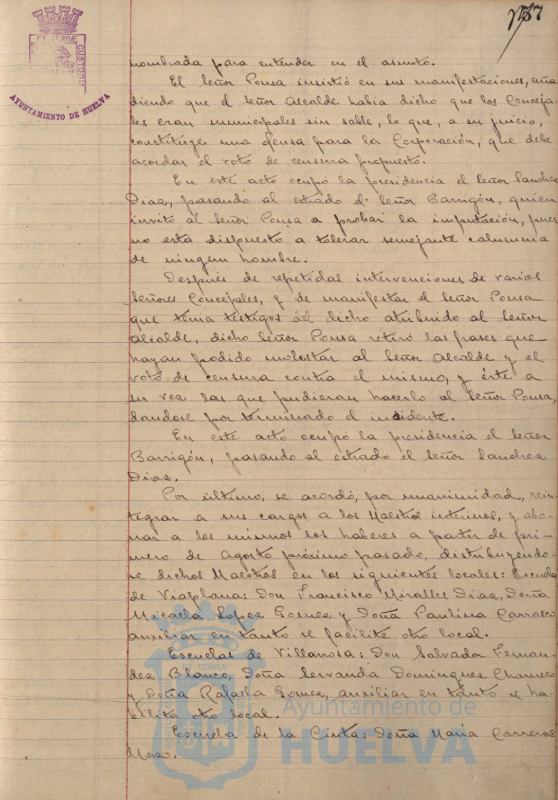 137
PORTUS MARIS ET TERRÆ CUSTODIA
AYUNTAMIENTO DE HUELVA
nombrada para entender en el asunto.
El Señor Ponsa insistió en sus manifestaciones, aña
diendo que el Señor Alcalde habia dicho que los Conceja
les eran municipales sin sable, lo que, a su juicio,
constituye una ofensa para la Corporación, que debe
acordar el voto de censura propuesto.
En este acto ocupó la presidencia el Señor Sanchez
Diaz, pasando al estrado el Señor Barrigón, quien
invitó al Señor Ponsa a probar la imputación, pues
no está dispuesto a tolerar semejante calumnia
de ningun hombre.
Después de repetidas intervenciones de varios
Señores Concejales, y de manifestar el Señor Ponsa
que tenia testigos del dicho atribuido al Señor
Alcalde, dicho Señor Ponsa retiró las frases que
hayan podido molestar al Señor Alcalde y el
voto de censura contra el mismo, y éste a
su vez las que pudieran hacerlo al Señor Ponsa,
dandose por terminado el incidente.
En este acto ocupó la presidencia el Señor
Barrigón, pasando al estrado el Señor Sanchez
Diaz.
Por último, se acordó, por unanimidad, rein
tegrar a sus cargos a los Maestros interinos, y abo
nar a los mismos los haberes a partir de pri
mero de Agosto próximo pasado, distribuyendo
se dichos Maestros en los siguientes locales: Escuelas
de Viaplana: Don Francisco Miralles Diaz, Doña
Micaela Lopez Gomez y Doña Paulina Carrasco
auxiliar en tanto se facilite otro local.
Escuelas de Villarrosa: Don Salvador Fernan
dez Blanco, Doña Servanda Dominguez Chamuco
y Doña Rafaela Gomez, auxiliar en tanto se ha
bilita otro local.
Escuela de la Cinta: Doña Maria Carreras
Ayuntamiento de
HUELVA